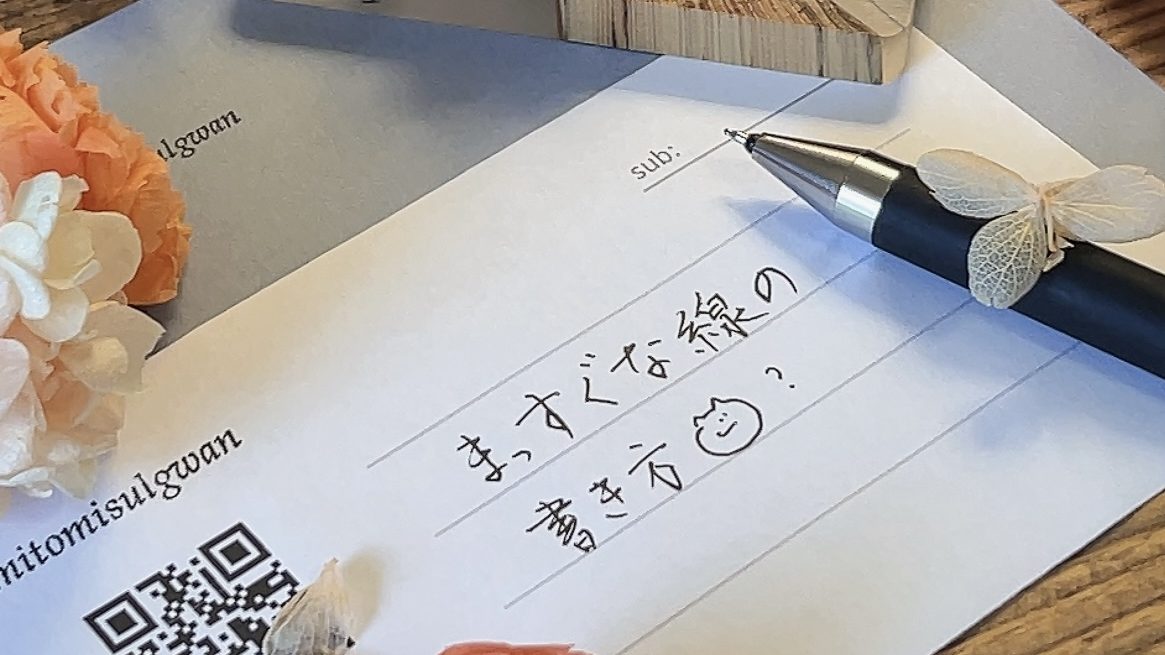 ulgwan
sub:
まっすぐな線の
書き方?
mitomisulgwan